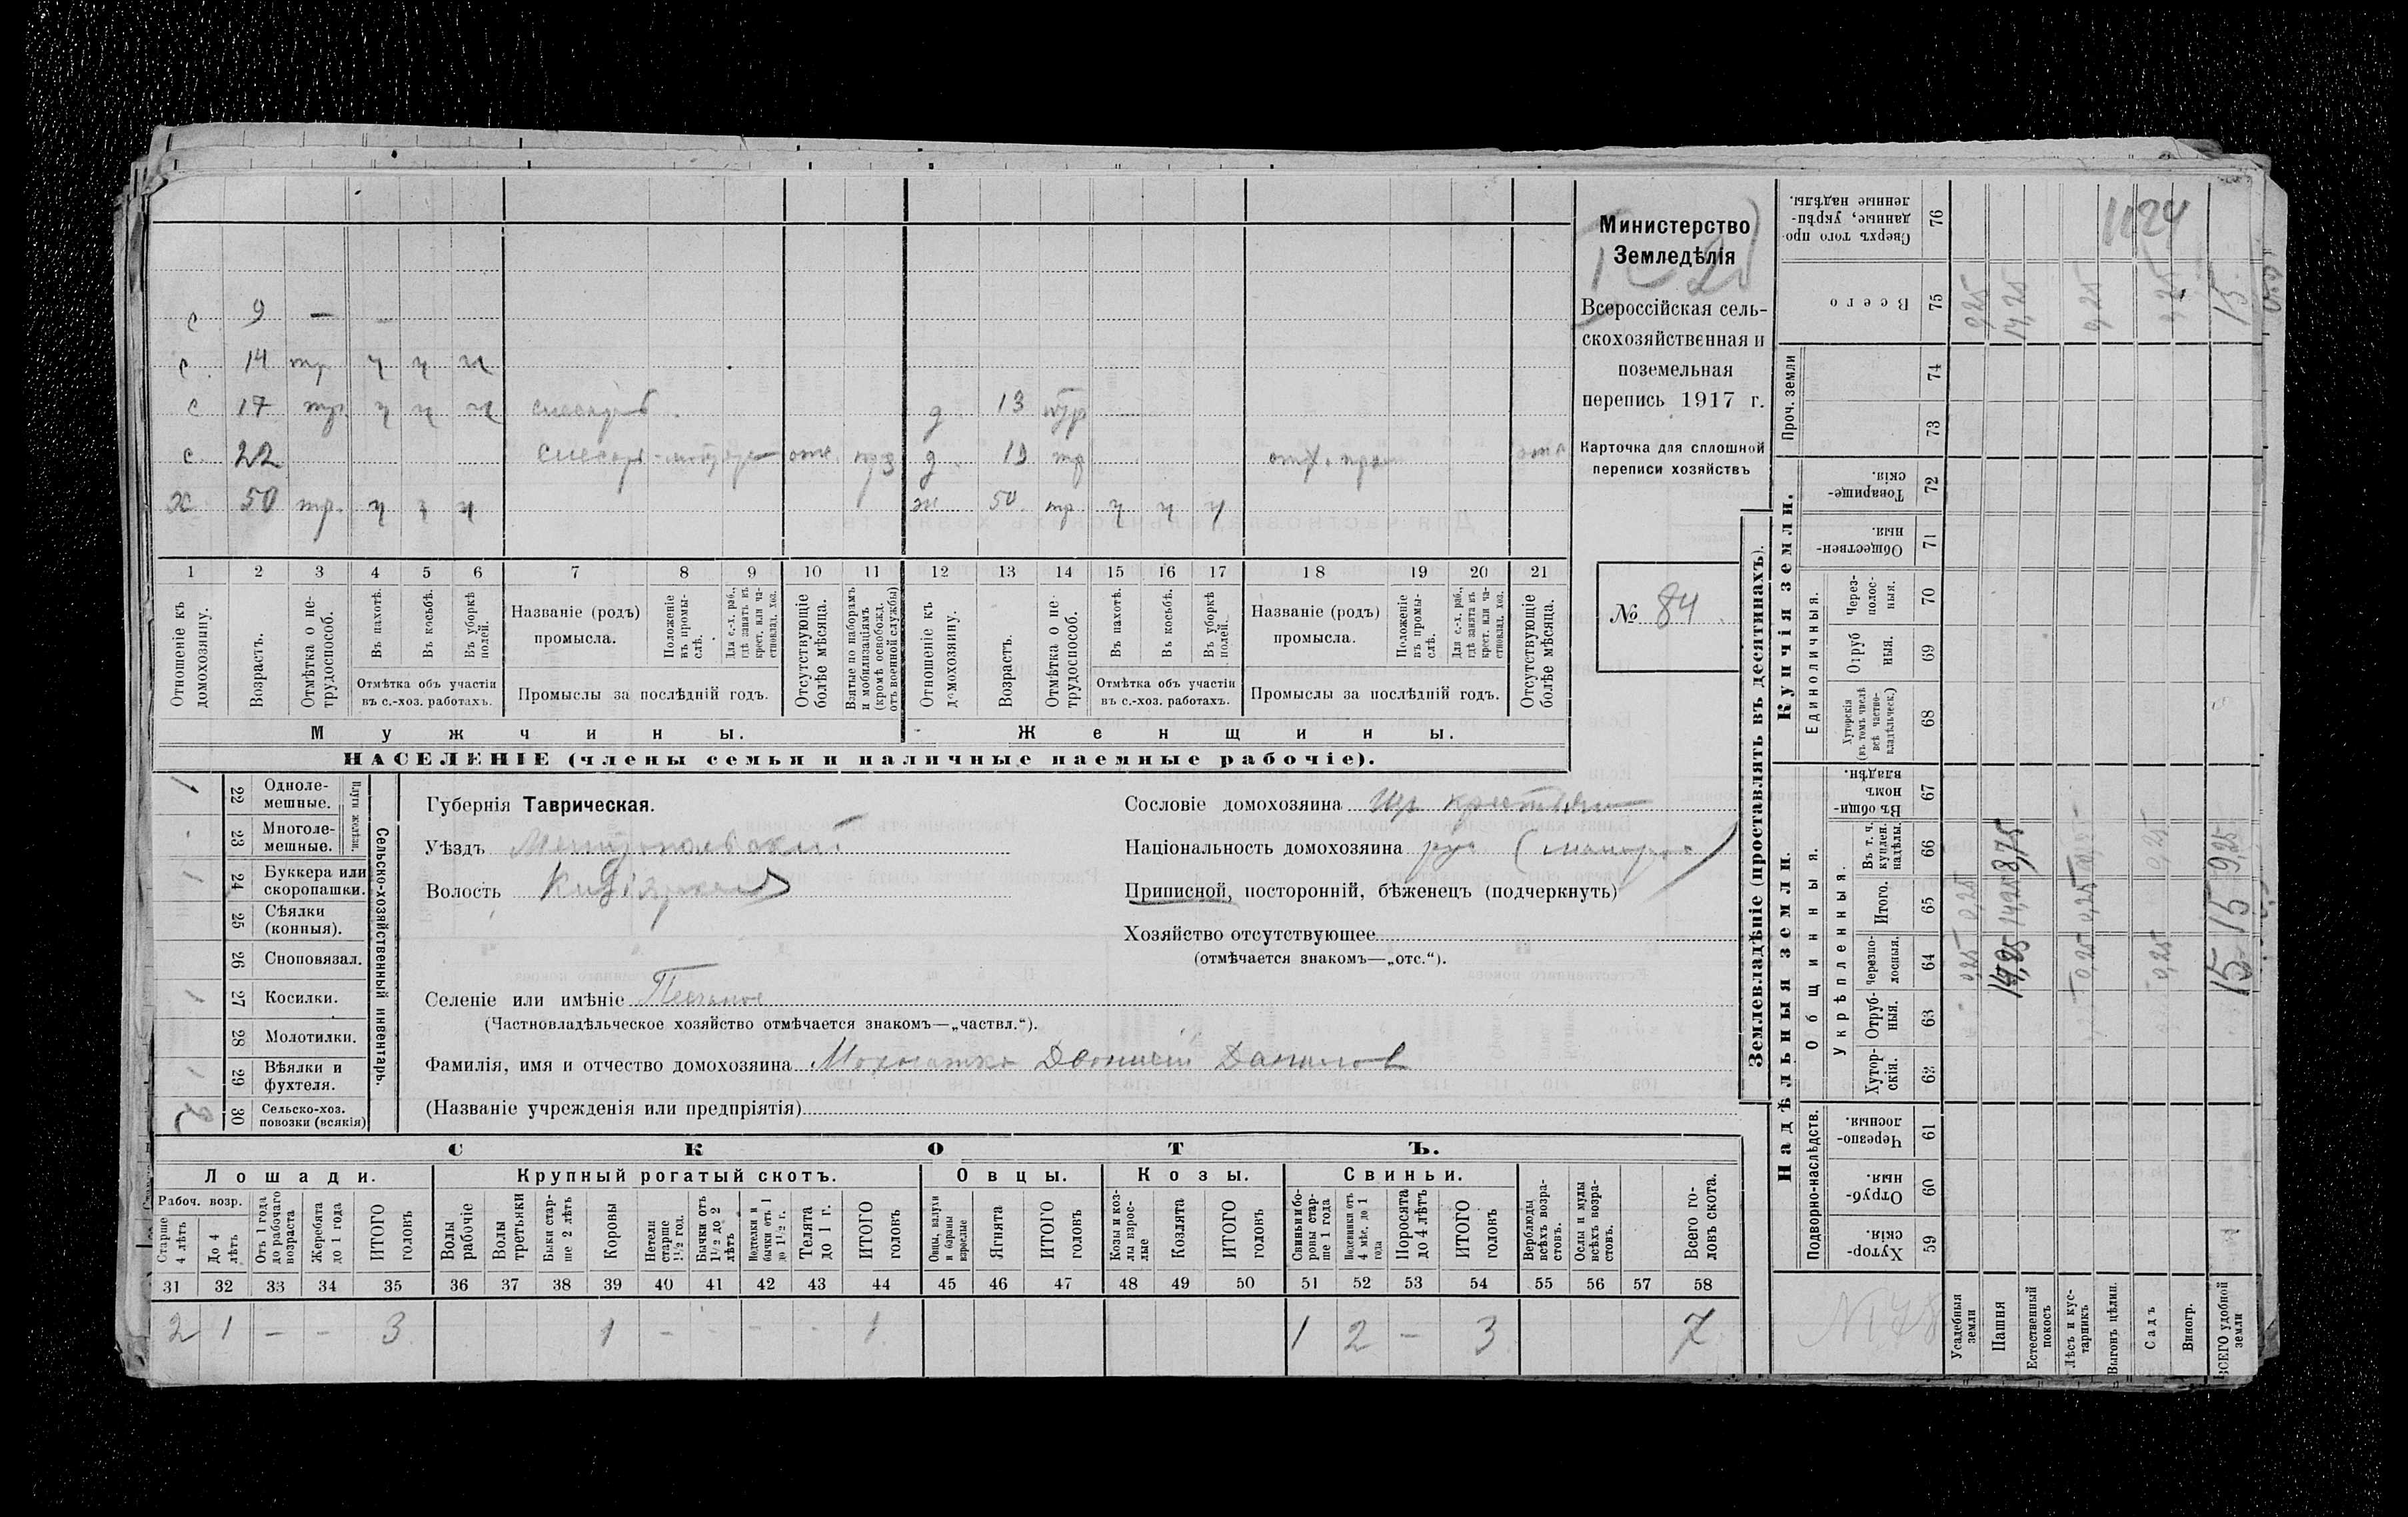 с 9 — —
с 14 тр ч ч ч
с 17 тр. ч ч ч слесарь д 13 тр
с 22 отс. д 19 тр
х 50 тр. ч ч ч ж 50 тр ч ч ч
1 2 3 4 5 6 7 8 9 10 11 12 13 14 15 16 17 18 19 20 21
Отношеніе къ домохозяину.
Возрастъ.
Отмѣтка о не-
трудоспособ.
Въ пахотѣ.
Въ косьбѣ.
Въ уборкѣ
полей.
Отмѣтка объ участіи
въ с.-хоз. работахъ.
Названіе (родъ)
промысла.
Положеніе
въ промы-
слѣ.
Для с.-х. раб.,
гдѣ занятъ въ
крест. или ча-
стновлад. хоз.
Промыслы за послѣдній годъ.
Отсутствующіе
болѣе мѣсяца.
Взятые по наборамъ
и мобилизаціямъ
(кромѣ освобожд.
отъ военной службы)
Отношеніе къ
домохозяину.
Возрастъ.
Отмѣтка о не-
трудоспособ.
Въ пахотѣ.
Въ косьбѣ.
Въ уборкѣ
полей.
Отмѣтка объ участіи
въ с.-хоз. работахъ.
Названіе (родъ)
промысла.
Положеніе
въ промы-
слѣ.
Для с.-х. раб.,
гдѣ занята въ
крест. или ча-
стновлад. хоз.
Промыслы за послѣдній годъ.
Отсутствующіе
болѣе мѣсяца.
Мужчины.
Женщины.
НАСЕЛЕНІЕ (члены семьи и наличные наемные рабочіе).
Министерство
Земледѣлія
Всероссійская сель-
скохозяйственная и
поземельная
перепись 1917 г.
Карточка для сплошной
переписи хозяйствъ
№ 84
Сельско-хозяйственный инвентарь.
Плуги желѣзн.
1 22 Одноле-
мешные.
23 Многоле-
мешные.
1 24 Буккера или
скоропашки.
25 Сѣялки
(конныя).
26 Сноповязал.
1 27 Косилки.
28 Молотилки.
1 29 Вѣялки и
фухтеля.
2 30 Сельско-хоз.
повозки (всякія)
Губернія Таврическая.
Уѣздъ Мелитопольскій
Волость
Селеніе или имѣніе
(Частновладѣльческое хозяйство отмѣчается знакомъ—„частвл.“).
Фамилія, имя и отчество домохозяина Данилов
(Названіе учрежденія или предпріятія)
Сословіе домохозяина
Національность домохозяина
Приписной, посторонній, бѣженецъ (подчеркнуть)
Хозяйство отсутствующее
(отмѣчается знакомъ—„отс.“).
СКОТЪ.
Лошади. Крупный рогатый скотъ. Овцы. Козы. Свиньи.
Рабоч. возр.
Старше
4 лѣтъ
До 4
лѣтъ
Отъ 1 года
до рабочаго
возраста
Жеребята
до 1 года
ИТОГО
головъ
Волы
рабочіе
Волы
третьяки
Быки стар-
ше 2 лѣтъ
Коровы
Нетели
старше
1½ год.
Бычки отъ
1½ до 2
лѣтъ
Нетелки и
бычки отъ 1
до 1½ г.
Телята
до 1 г.
ИТОГО
головъ
Овцы, валухи
и бараны
взрослые
Ягнята
ИТОГО
головъ
Козы и коз-
лы взрос-
лые
Козлята
ИТОГО
головъ
Свиньи и бо-
ровы стар-
ше 1 года
Подсвинки отъ
4 мѣс. до 1
года
Поросята
до 4 лѣтъ
ИТОГО
головъ
Верблюды
всѣхъ возра-
стовъ.
Ослы и мулы
всѣхъ возра-
стовъ.
Всего го-
ловъ скота.
31 32 33 34 35 36 37 38 39 40 41 42 43 44 45 46 47 48 49 50 51 52 53 54 55 56 57 58
2 1 — — 3 1 - - - - 1 1 2 — 3 7
Землевладѣніе (проставлять въ десятинахъ).
Купчія земли.
Надѣльныя земли.
Сверхъ того про-
данные, укрѣп-
ленные надѣлы.
76
Всего
75
Проч. земли
74
73
Товарище-
скія.
72
Обществен-
ныя
71
Единоличныя.
Через-
полос-
ныя.
70
Отруб
ныя.
69
Хуторскія
(въ томъ числѣ
всѣ частно-
владѣльческ.)
68
Общинныя.
Въ общи-
номъ
владѣн.
67
Укрѣпленныя.
Въ т. ч.
куплен.
надѣлы.
66
Итого.
65
Черезпо-
лосныя.
64
Отруб-
ныя.
63
Хутор-
скія.
62
Подворно-наслѣдств.
Черезпо-
лосныя.
61
Отруб-
ныя.
60
Хутор-
скія.
59
Усадебныя
земли
0,25 0,25 0,25
Пашня
14,25 14,25 8,75 14,25
Естественный
покосъ
Лѣсъ и кус-
тарникъ
0,25 0,25 0,25
Выгонъ цѣлин.
Садъ
0,25
Виногр.
ВСЕГО удобной
земли
15 15 9,25 15
1124